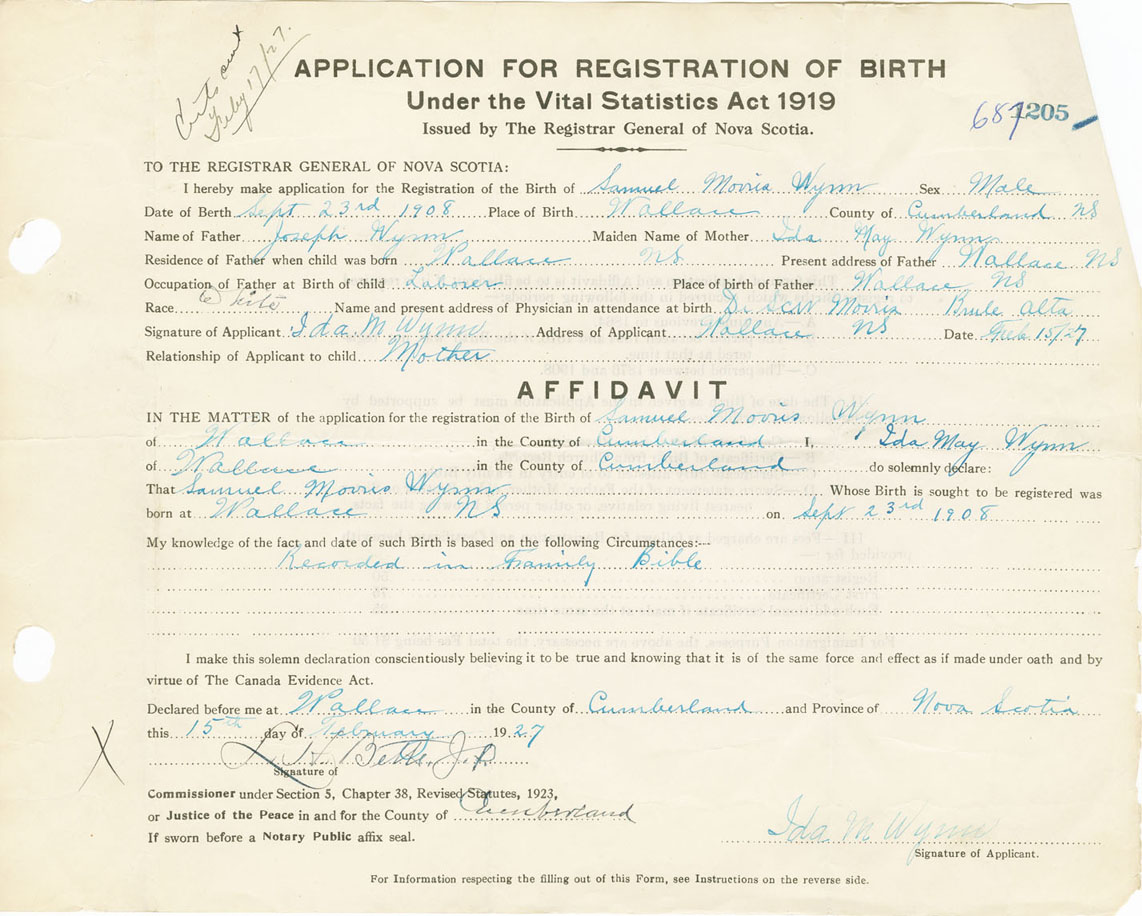 Certs sent
Feby 17/27.
APPLICATION FOR REGISTRATION OF BIRTH
Under the Vital Statistics Act 1919
Issued by The Registrar General of Nova Scotia.
687 1205
TO THE REGISTRAR GENERAL OF NOVA SCOTIA:
I hereby make application for the Registration of the Birth of Samuel Morris Wynn Sex Male
Date of Berth Sept 23rd 1908 Place of Birth Wallace County of Cumberland NS
Name of Father Joseph Wynn Maiden Name of Mother Ida May Wynn
Residence of Father when child was born Wallace NS Present address of Father Wallace NS
Occupation of Father at Birth of child Laborer Place of birth of Father Wallace NS
Race White Name and present address of Physician in attendance at birth Dr Morris Brule Alta
Signature of Applicant Ida M Wynn Address of Applicant Wallace NS Date Feb 15/27
Relationship of Applicant to child Mother
AFFIDAVIT
IN THE MATTER of the application for the registration of the Birth of Samuel Morris Wynn
of Wallace in the County of Cumberland I, Ida May Wynn
of Wallace in the County of Cumberland do solemnly declare:
That Samuel Morris Wynn Whose Birth is sought to be registered was
born at Wallace NS on Sept 23rd 1908
My knowledge of the fact and date of such Birth is based on the following Circumstances:—
Recorded in Family Bible
I make this solemn declaration conscientiously believing it to be true and knowing that it is of the same force and effect as if made under oath and by
virtue of The Canada Evidence Act.
Declared before me at Wallace in the County of Cumberland and Province of Nova Scotia
this 15th day of February 1927
H. Betts, J.P.
Signature of
X
Commissioner under Section 5, Chapter 38, Revised Statutes, 1923,
or Justice of the Peace in and for the County of Cumberland
If sworn before a Notary Public affix seal.
Ida M Wynn
Signature of Applicant.
For Information respecting the filling out of this Form, see Instructions on the reverse side.